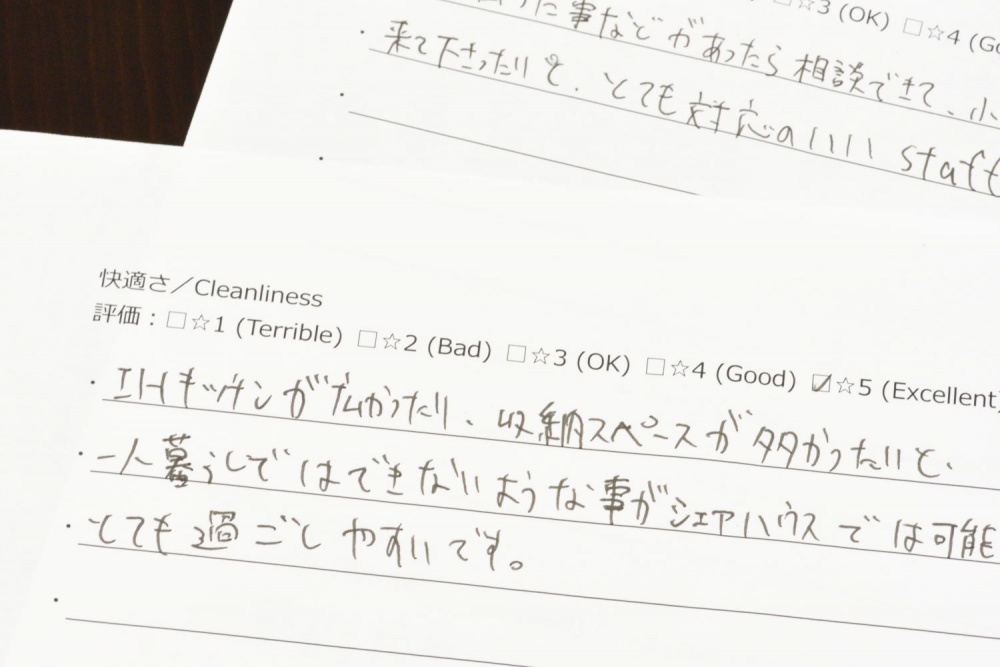 ☆3 (OK) □☆4 (Go
事などがあったら相談できて、小
来て下さったりと、とても対応のいい staff
快適さ／Cleanliness
評価：□☆1 (Terrible) □☆2 (Bad) □☆3 (OK) □☆4 (Good) ☑☆5 (Excellent)
・IHキッチンが広かったり、収納スペースが多かったりと、
・一人暮らしではできないような事がシェアハウスでは可能
・とても過ごしやすいです。